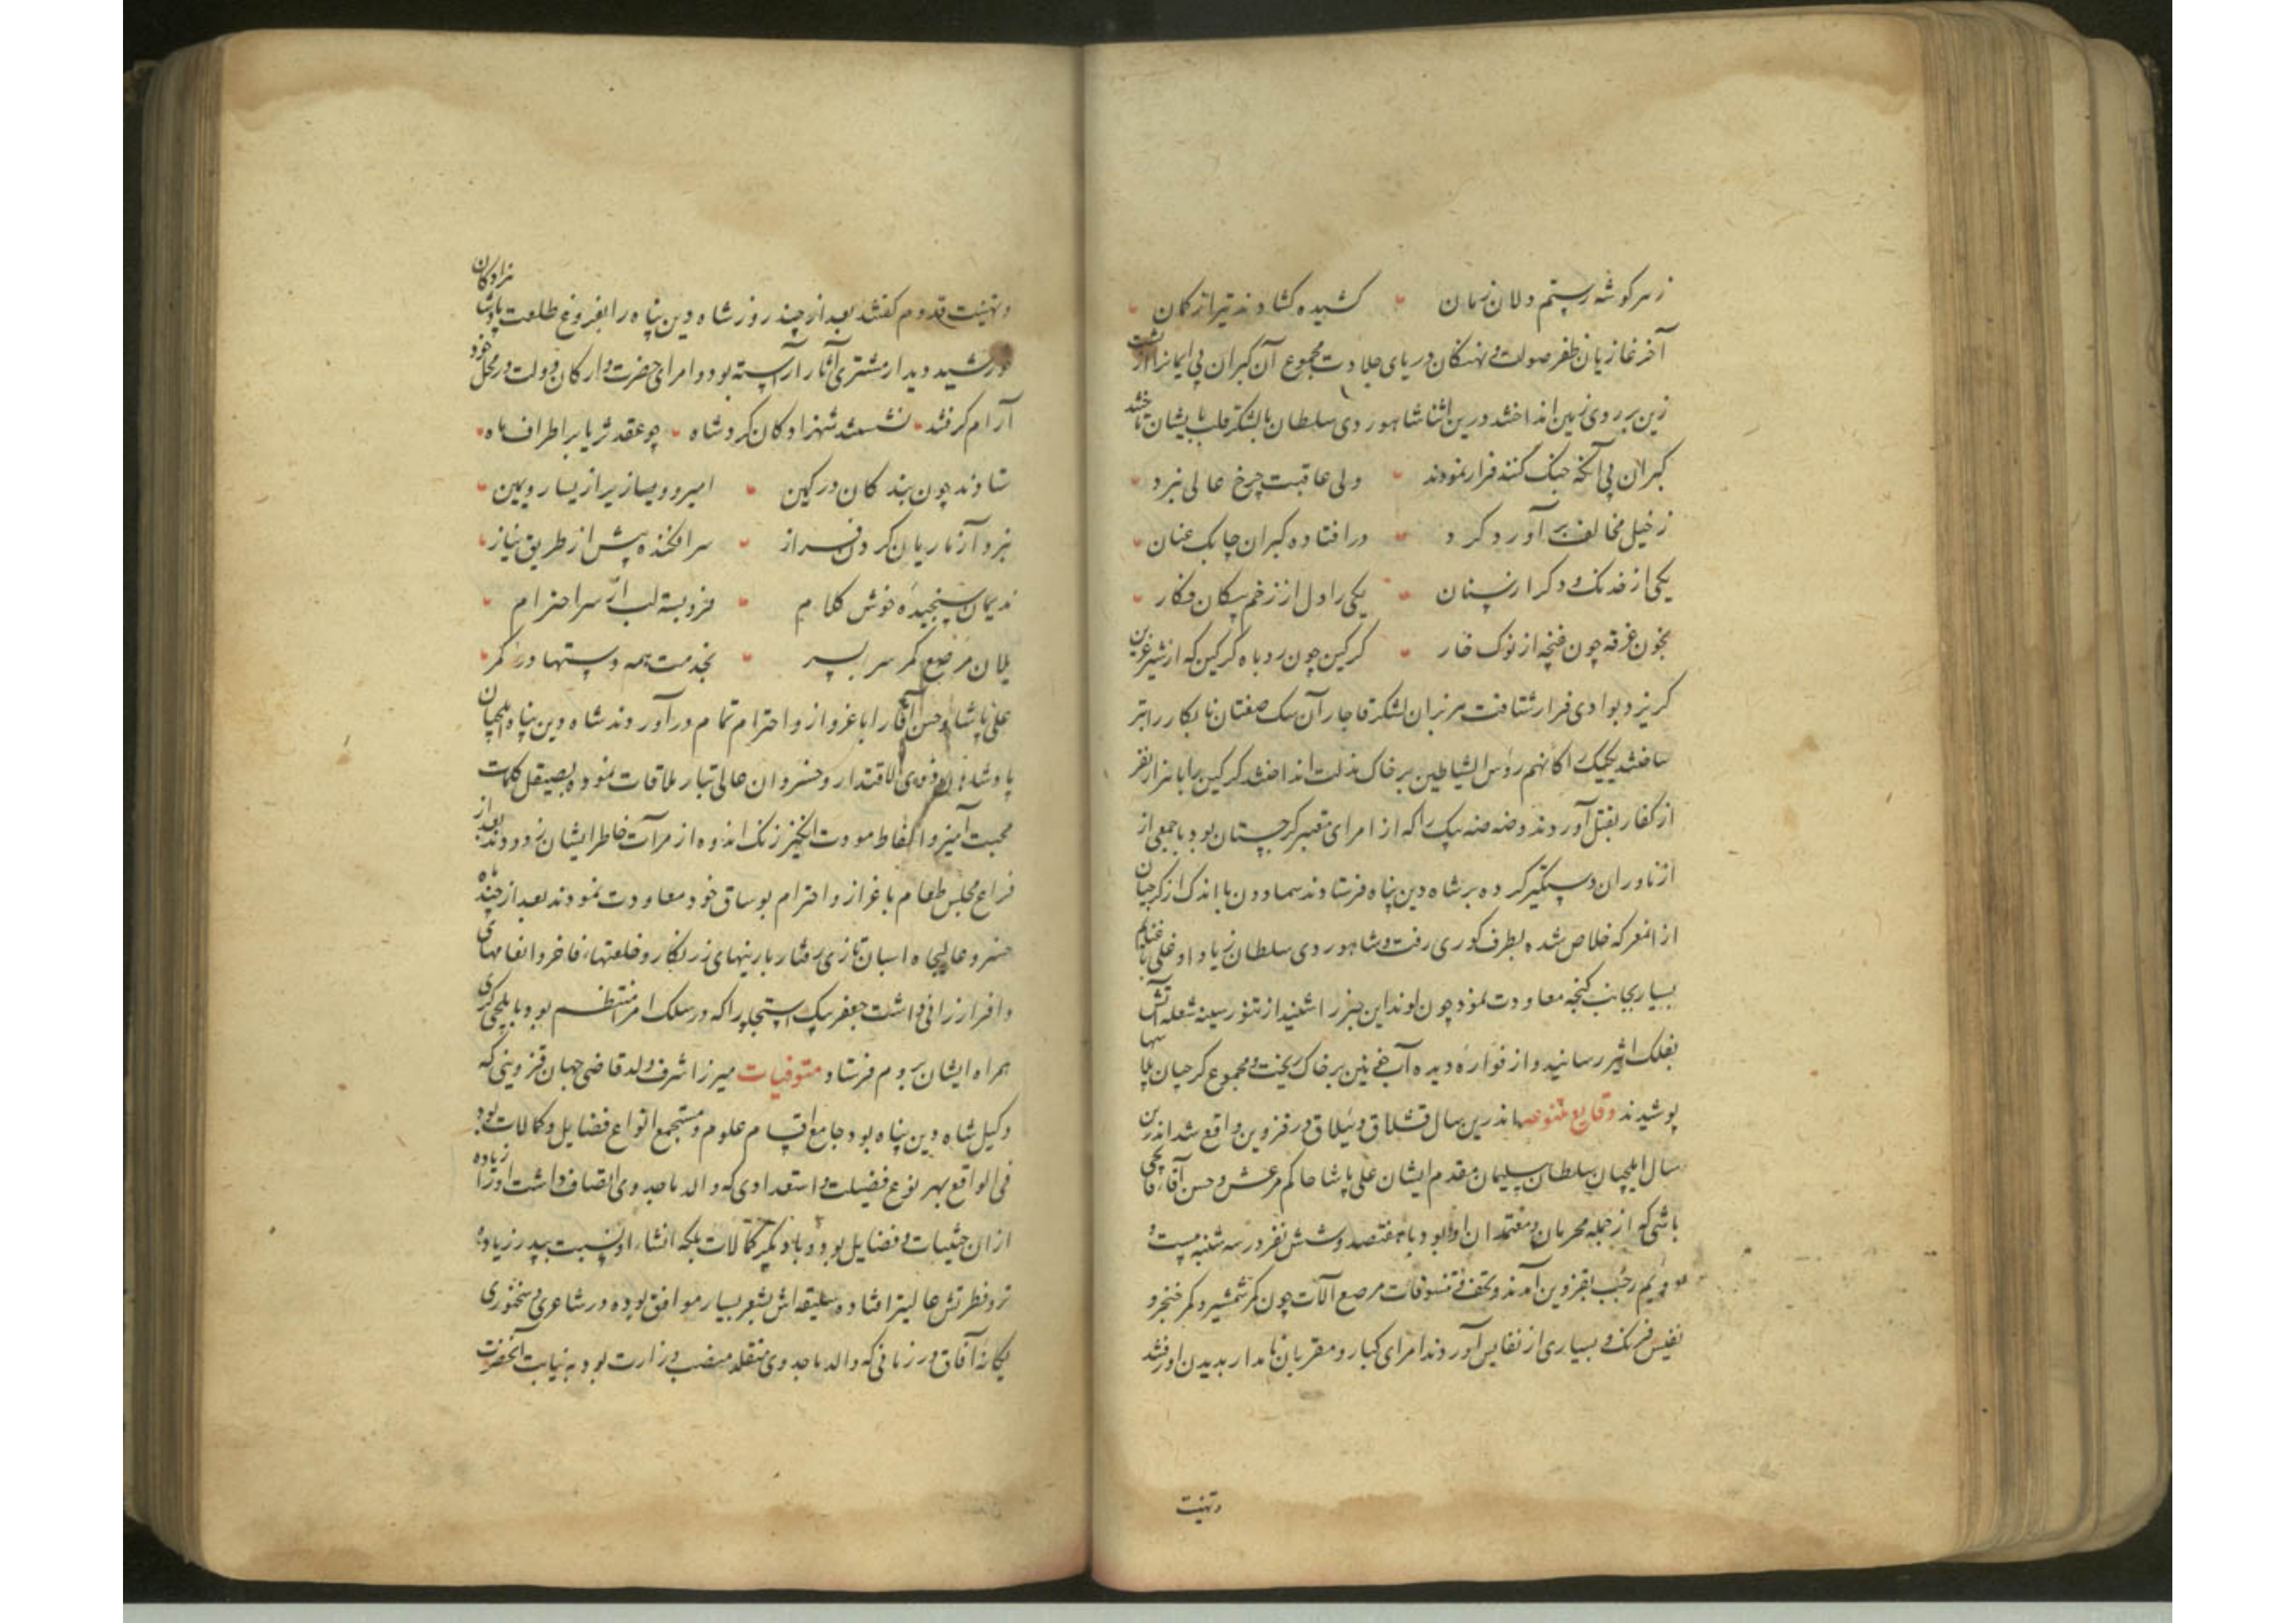 ز هر گوشه رستم دلان زمان کشیده گشادند تیر از کمان
آخر غازیان ظفر صولت و نهنگان دریای جلادت مجموع آن گبران بی ایمانرا از پشت
زین بر روی زمین انداختند درین اثنا شاهوردی سلطان با لشکر قلب بایشان تاختند
گبران بی آنکه جنگ کنند فرار نمودند ولی عاقبت چرخ عالی نبرد
ز خیل مخالف برآورد گرد در افتاده گبران چابک عنان
یکی از خدنک و دگر از سنان یکی را دل از زخم پیکان فکار
بخون غرقه چون غنچه از نوک خار گرگین چون روباه گرگین که از شیر عرین
گریزد بوادی فرار شتافت هزبران لشکر قاجار آن سگ صفتان نابکار را بتر
ساختند یکیک اکانهم رؤس الشیاطین بر خاک مذلت انداختند گرگین را با هزار نفر
از کفار بقتل آوردند و بیک را که از امرای معتبر گرجستان بود با جمعی از
ازناوران دستگیر کرده بر شاه دین پناه فرستادند سماوون با اندک از گرجیان
از انمعرکه خلاص شده بطرف کوری رفت و شاهوردی سلطان زیاد اوغلی با غنایم
بسیار بجانب گنجه معاودت نمود چون لوند این خبر را شنید از تنور سینه شعله آتش
بفلک اثیر رسانید و از فواره دیده آب خونین بر خاک ریخت و مجموع گرجیان پلاسها
پوشیدند وقایع متنوعه اندرین سال قشلاق و ییلاق در قزوین واقع شد اندرین
سال ایلچیان سلطان سلیمان مقدم ایشان علی پاشا حاکم مرعش و حسن آقا قاپچی
باشی که از جمله محرمان و معتمدان او بود با هفتصد و شش نفر در سه شنبه بیست و
رجب بقزوین آمدند و تحف و تنسوقات مرصع آلات چون کمر شمشیر و کمر خنجر و
نفیس فرنک و بسیاری از نفایس آوردند امرای کبار و مقربان نامدار بدیدن او رفتند
و تهنیت
و تهنیت قدوم گفتند بعد از چند روز شاه دین پناه را بفروغ طلعت پادشا نزادکان
خورشید دیدار مشتری آثار آراسته بود و امرای حضرت و ارکان دولت در محل خود
آرام گرفتند نشستند شهزادکان گرد شاه چو عقد ثریا بر اطراف ماه
ستادند چون بندکان در کمین امیر و وزیر از یسار و یمین
نبرد آزماریان گردن فراز سر افکنده پیش از طریق نیاز
ندیمان سنجیده خوش کلام فرو بسته لب از سر احترام
یلان مرصع کمر سر بسر بخدمت همه دستها در کمر
علی پاشا و حسن آقا را با عزو از و احترام تمام درآوردند شاه دین پناه ایلچیان
پادشاه ذوی الاقتدار و خسروان عالی تبار ملاقات نموده بصیقل کلمات
محبت آمیز و الفاظ مودت انگیز زنک اندوه از مرآت خاطر ایشان زدودند بعد از
فراغ مجلس طعام با عزاز و احترام بوساق خود معاودت نمودند بعد از چند ماه
خسرو عالیجاه اسبان تازی رفتار با زینهای زرنکار و خلعتهاء فاخر و انعامهای
وافر ارزانی داشت جعفر بیک استجلو را که در سلک امرا منتظم بود با یلچی گری
همراه ایشان بروم فرستاد متوفیات میرزا شرف ولد قاضی جهان قزوینی که
وکیل شاه دین پناه بود جامع اقسام علوم و مستجمع انواع فضایل و کمالات بود
فی الواقع بهر نوع فضیلت و استعدادی که والد ماجد وی اتصاف داشت او را زیاده
از ان حیثیات و فضایل بود و با دیگر کمالات بلکه انشاء او نسبت بپدر زیاده
تر و فطرتش عالیتر افتاده سلیقه اش بشعر بسیار موافق بوده در شاعری و سخنوری
یگانه آفاق و در زمانی که والد ماجد وی متقلد منصب وزارت بود به نیابت آنحضرت